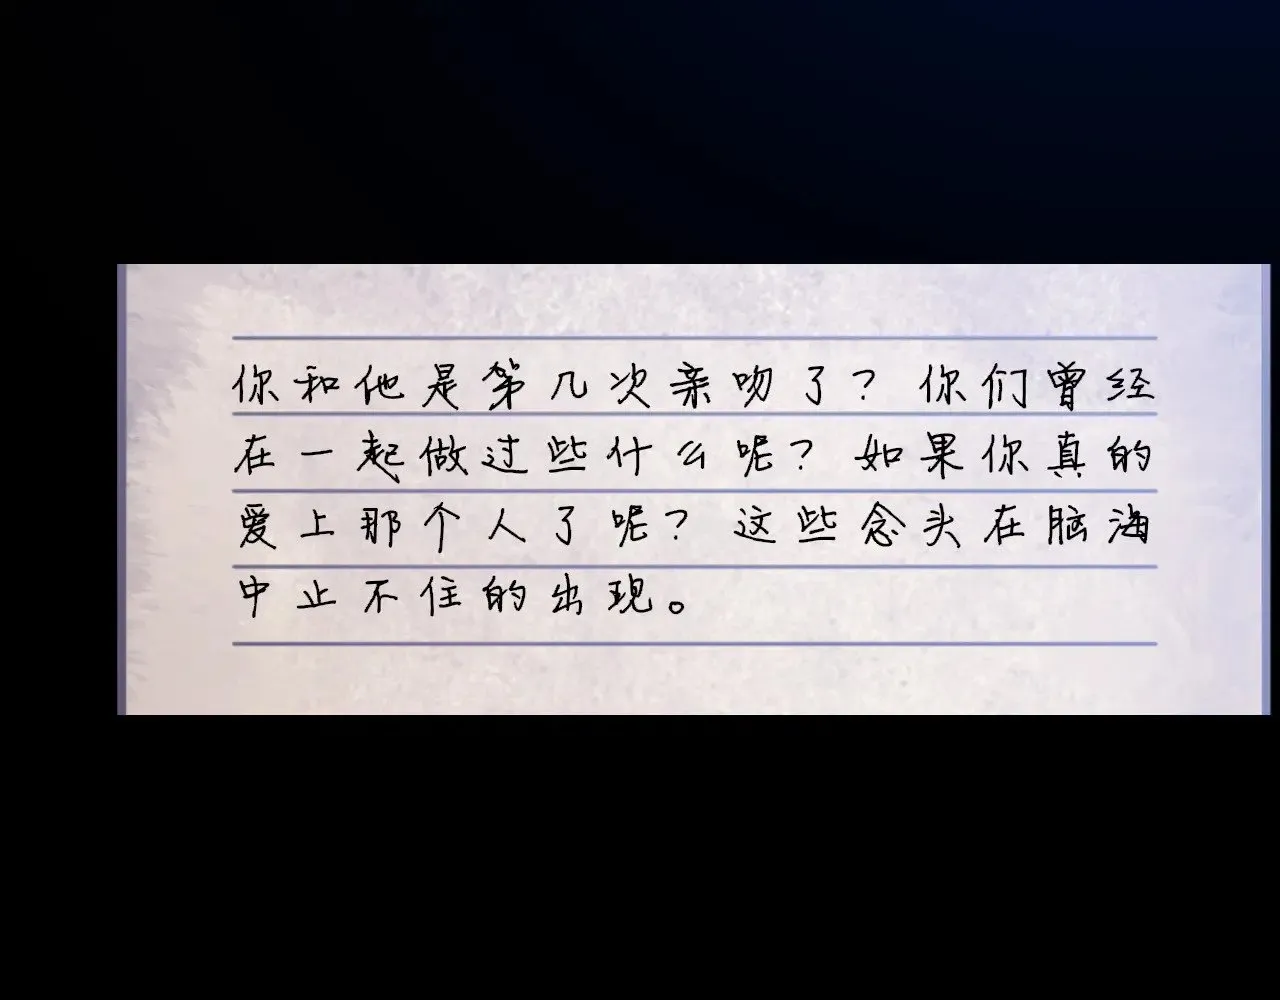 你和他是第几次亲吻了？你们曾经
在一起做过些什么呢？如果你真的
爱上那个人了呢？这些念头在脑海
中止不住的出现。